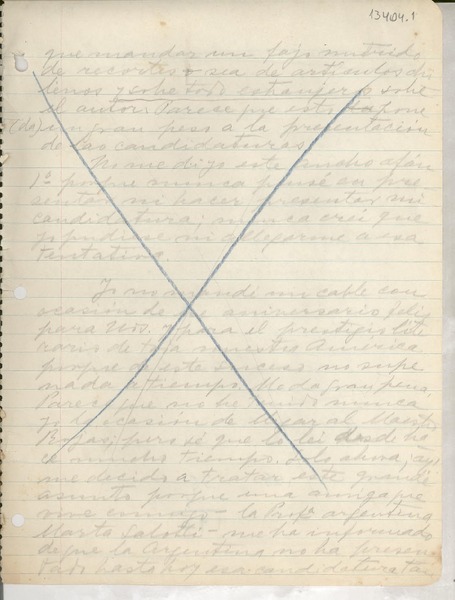 13404.1
que mandar un fajo nutrido
de recortes o sea de artículos chi
lenos y sobre todo extranjeros sobre
el autor. Parece que esto pone
(da) un gran peso a la presentación
de las candidaturas.
No me dijo este mucho afán
1º porque nunca pensé en pre
sentar ni hacer presentar mi
candidatura; nunca creí que
yo pudiese ni allegarme a esa
tentativa.
Yo no mandé un cable con
ocasión de aniversario feliz
para Uds. y para el prestigio lite
rario de toda nuestra América
porque de este suceso no supe
nada a tiempo. Me da gran pena.
Parece que no he tenido nunca
yo la ocasión de tratar al Maestro
Rojas, pero sé que lo leí desde ha
ce mucho tiempo. Solo ahora,
me decido a tratar este grande
asunto porque una amiga que
vive conmigo - la Profª argentina
Marta Salotti - me ha informado
de que la Argentina no ha presen
tado hasta hoy esa candidatura tan